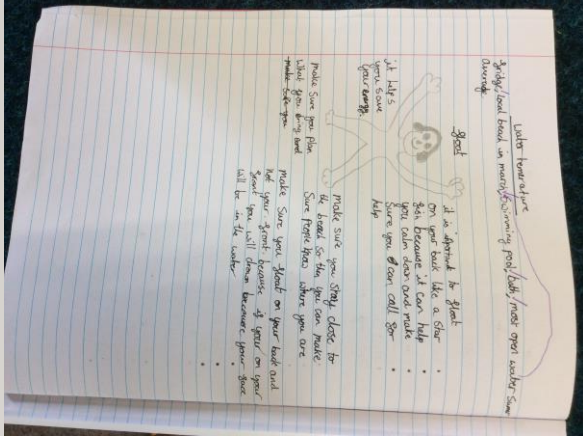 water temerature
Fridge/local beach in march/swimming pool/bath/most open water sumer
average
float
it is iportant to float
on your back like a star
fish because it can help
you calm down and make
sure you can call for
help
it helps
you save
your energy.
make sure you stay close to
the beach so then you can make
sure people know where you are
make sure you plan
what you bring and
make sure you
make sure you float on your back and
not your front because if your on your
front you will drown because your face
will be in the water